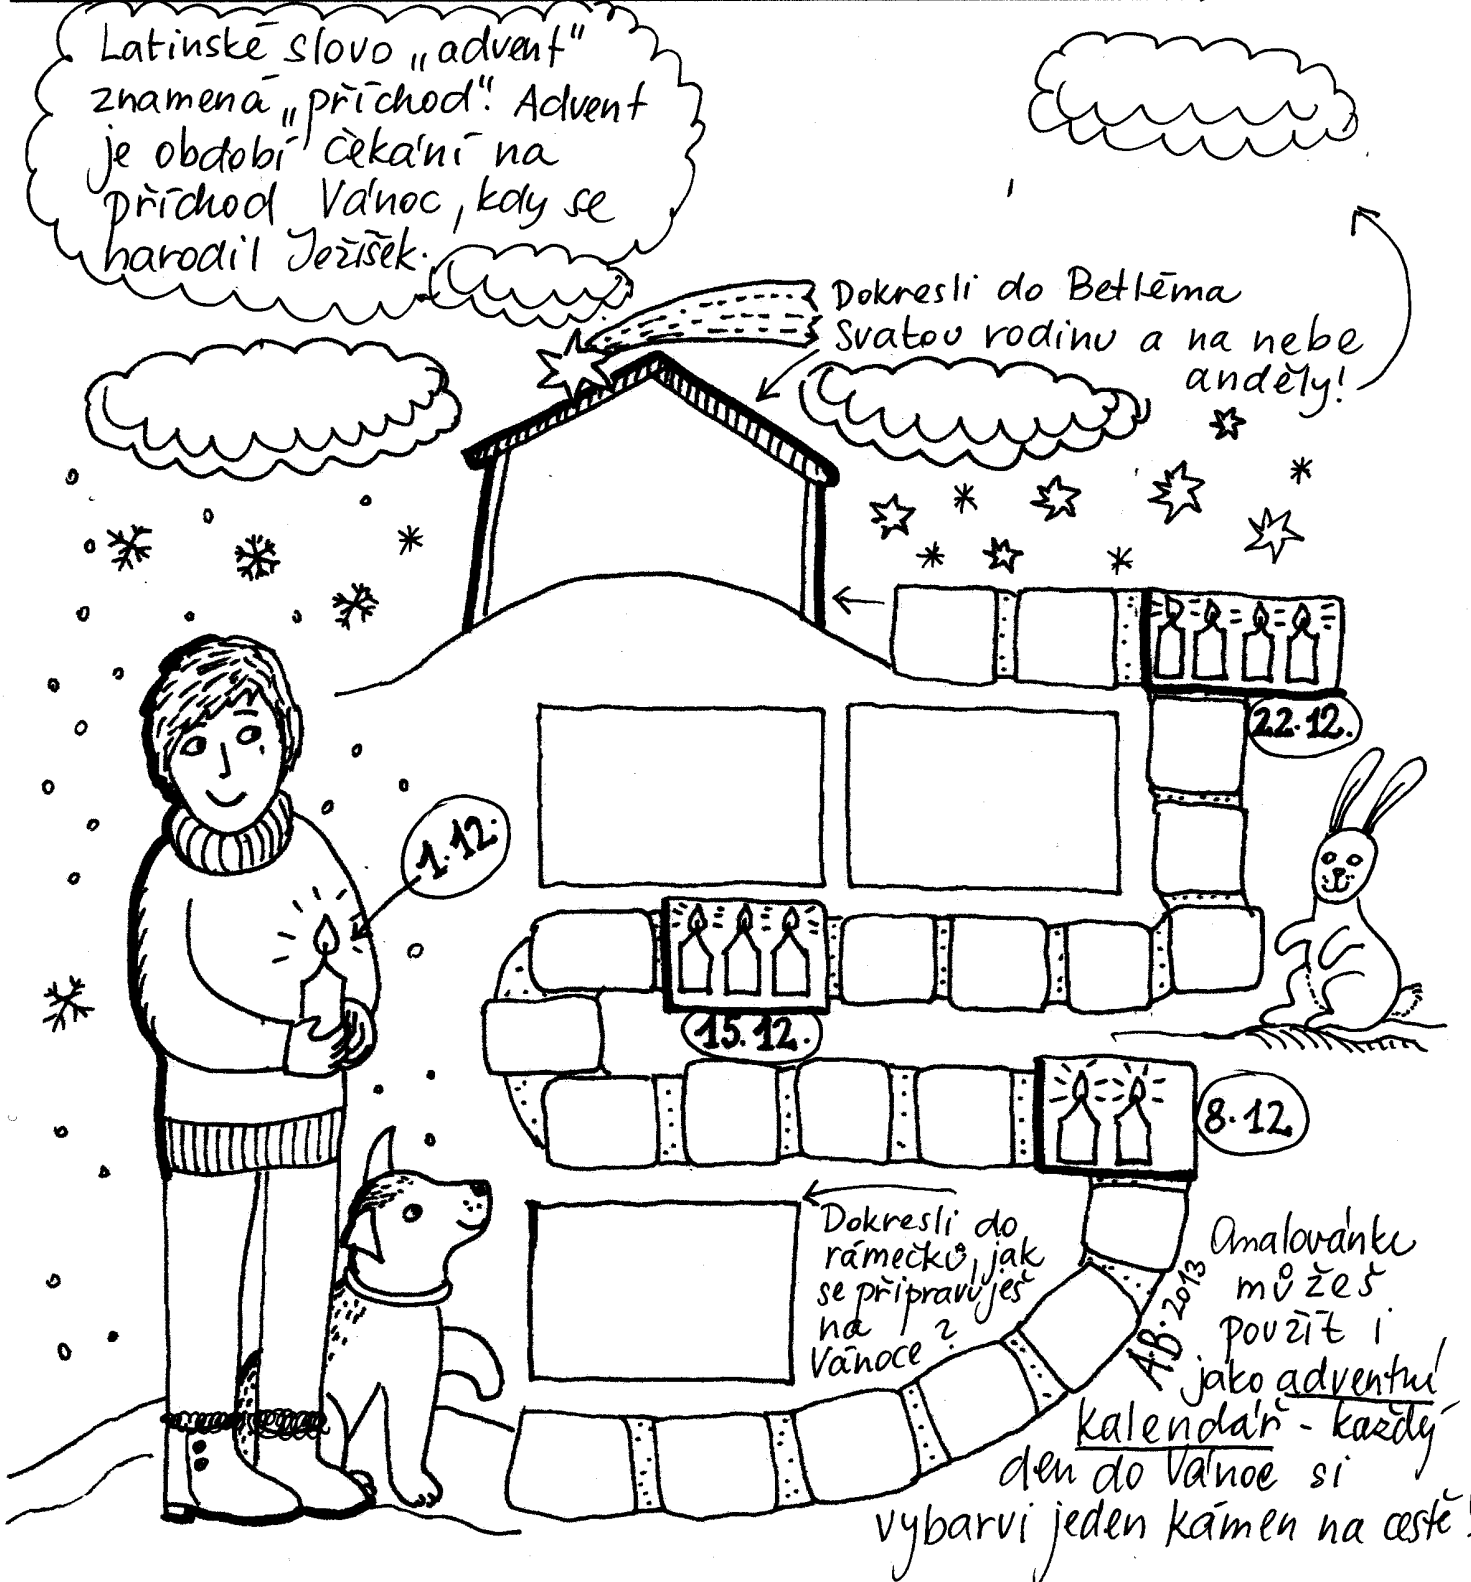 Latinské slovo „advent"
znamená „příchod". Advent
je období čekání na
příchod Vánoc, kdy se
narodil Ježíšek.
Dokresli do Betléma
Svatou rodinu a na nebe
anděly!
22.12.
1.12.
15.12.
8.12.
Dokresli do
rámečků, jak
se připravuješ
na
Vánoce?
AB.2013
Omalovánku
můžeš
použít i
jako adventní
kalendář - každý
den do Vánoc si
vybarvi jeden kámen na cestě!